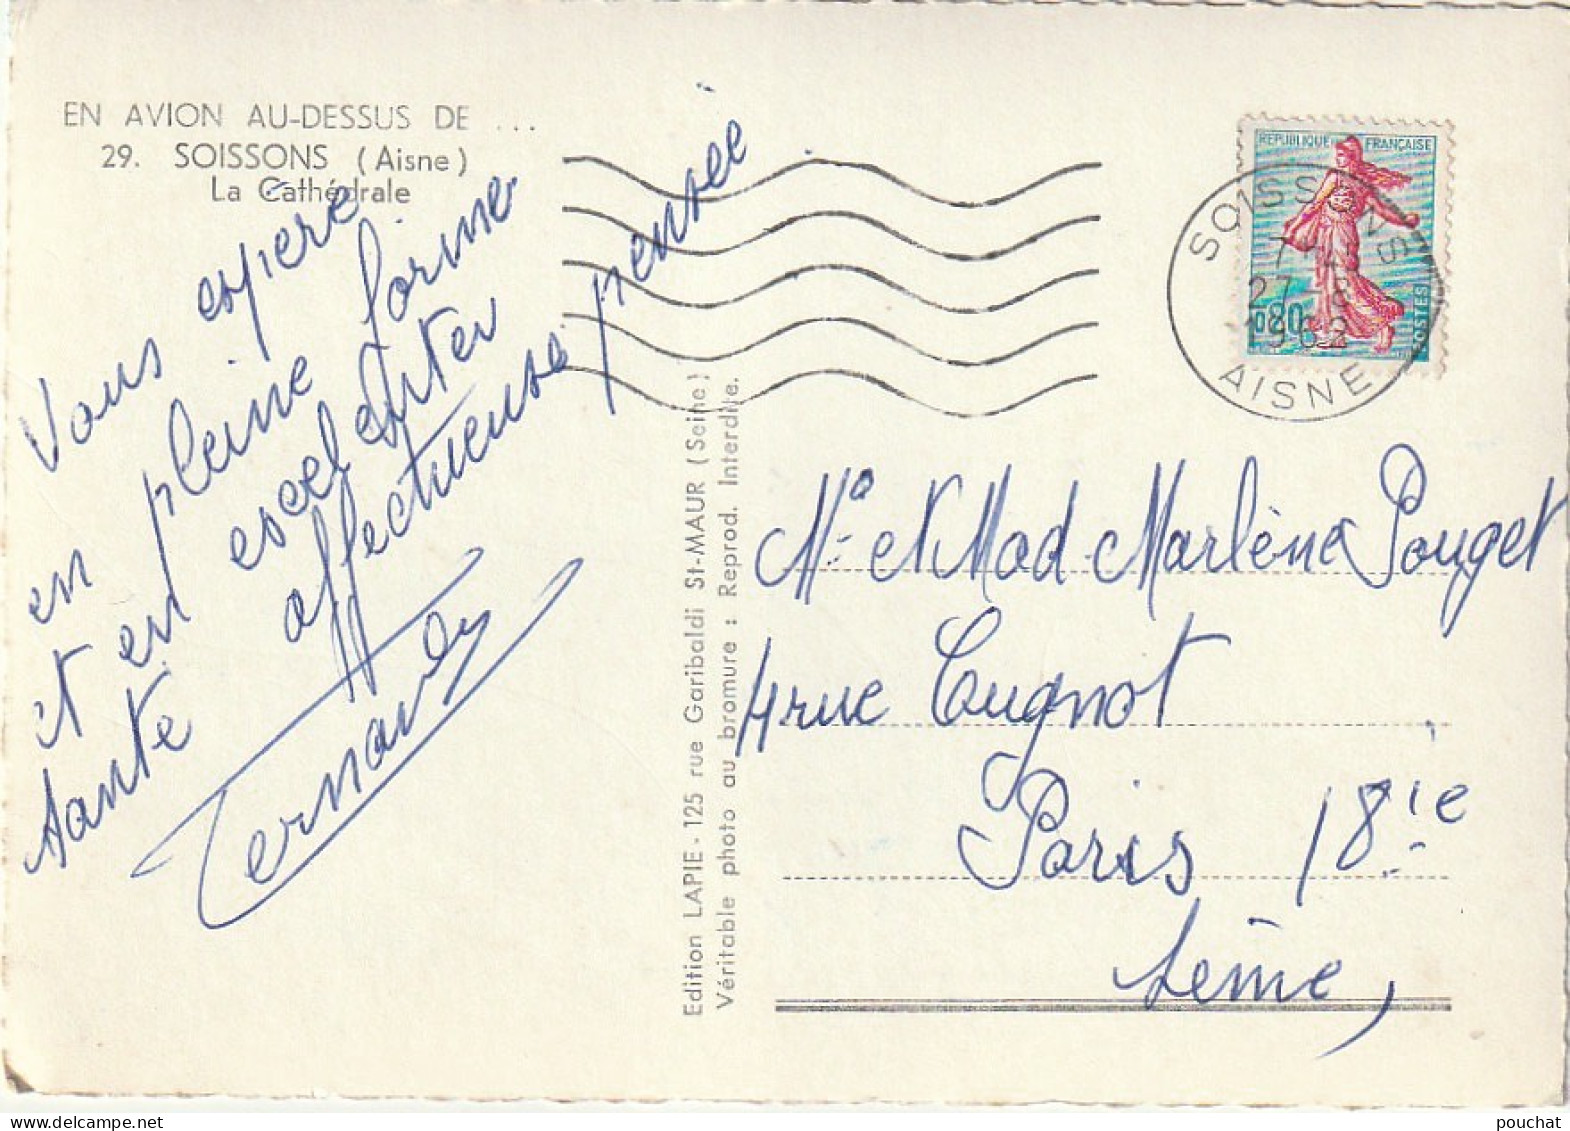 EN AVION AU-DESSUS DE ...
29. SOISSONS (Aisne)
La Cathédrale
Vous espère
en pleine forme
et en excellenter
santé
affectueuse pensée
Fernandy
Edition LAPIE - 125 rue Garibaldi St-MAUR (Seine)
Véritable photo au bromure : Reprod. Interdite.
REPUBLIQUE FRANÇAISE
0,20
POSTES
SOISSONS
27-8
1962
AISNE
Mr et Mad Marlène Pouget
4 rue Cugnot
Paris 18ie
Seine,
pouchat